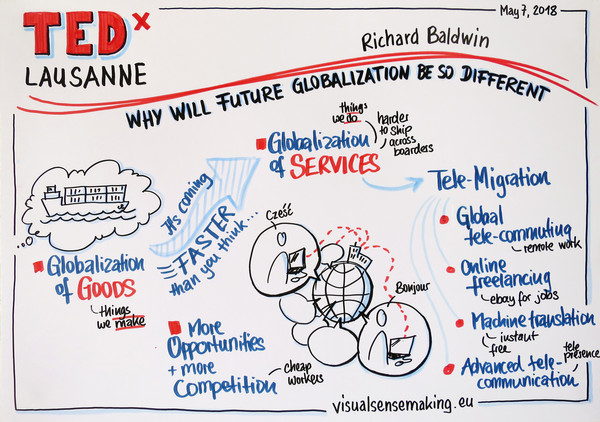 TEDx
LAUSANNE
May 7, 2018
Richard Baldwin
WHY WILL FUTURE GLOBALIZATION BE SO DIFFERENT
Globalization
of GOODS
things
we make
It's coming
FASTER
than you think...
Globalization
of SERVICES
things
we do
harder
to ship
across
boarders
More
Opportunities
+ more
Competition
cheap
workers
Cześć
Bonjour
Tele-Migration
Global
tele-commuting
remote work
Online
freelancing
ebay for jobs
Machine translation
instant
free
Advanced tele-
communication
tele
presence
visualsensemaking.eu